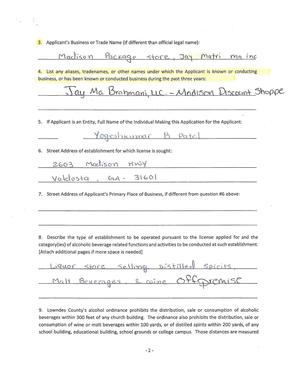 3. Applicant's Business or Trade Name (if different than official legal name):
Madison Package store, Jay Matri ma inc
4. List any aliases, tradenames, or other names under which the Applicant is known or conducting
business, or has been known or conducted business during the past three years:
Jay Ma Brahmani, LLC - Madison Discount Shoppe
5. If Applicant is an Entity, Full Name of the Individual Making this Application for the Applicant:
Yogeshkumar B Patel
6. Street Address of establishment for which license is sought:
2603 Madison HWY
Valdosta, GA - 31601
7. Street Address of Applicant's Primary Place of Business, if different from question #6 above:
8. Describe the type of establishment to be operated pursuant to the license applied for and the
category(ies) of alcoholic beverage related functions and activities to be conducted at such establishment:
[Attach additional pages if more space is needed]
Liquor store selling distilled spirits,
Malt Beverages, & wine Off premise
9. Lowndes County's alcohol ordinance prohibits the distribution, sale or consumption of alcoholic
beverages within 300 feet of any church building. The ordinance also prohibits the distribution, sale or
consumption of wine or malt beverages within 100 yards, or of distilled spirits within 200 yards, of any
school building, educational building, school grounds or college campus. Those distances are measured
- 2 -